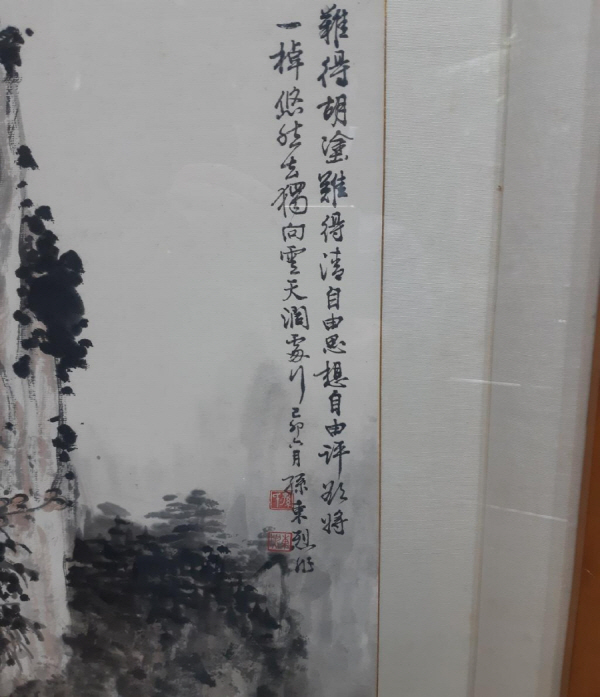 難得胡塗難得清自由思想自由評欲將
一棹悠然去獨向雲天濶處行己卯六月孫東烈作